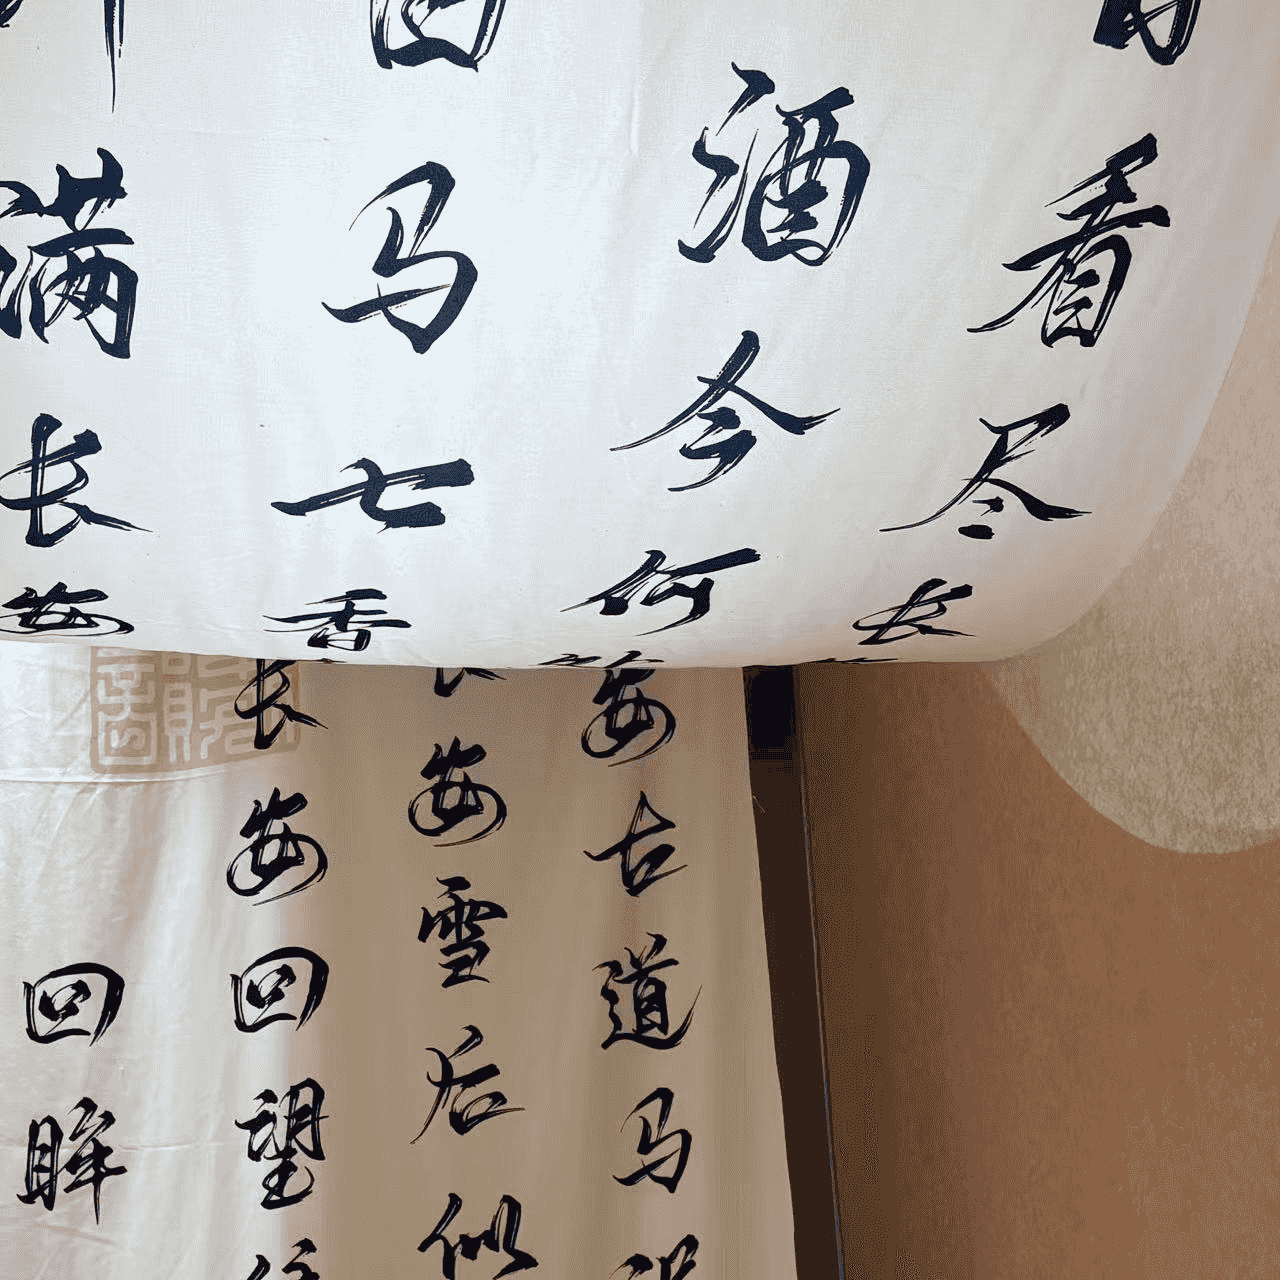 看尽长
酒今何
马七香
满长安
安古道马
安雪后似
长安回望
回眸